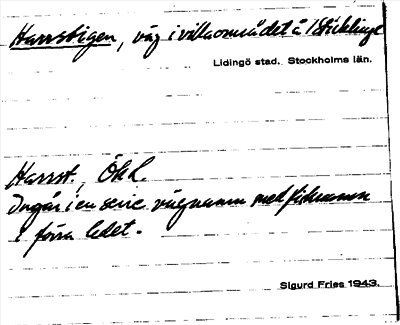 Harrstigen, väg i villaområdet å Sticklinge
Lidingö stad. Stockholms län.
Harrst., Ökk.
Ingår i en serie vägnamn med fisknamn
i förra ledet.
Sigurd Fries 1943.